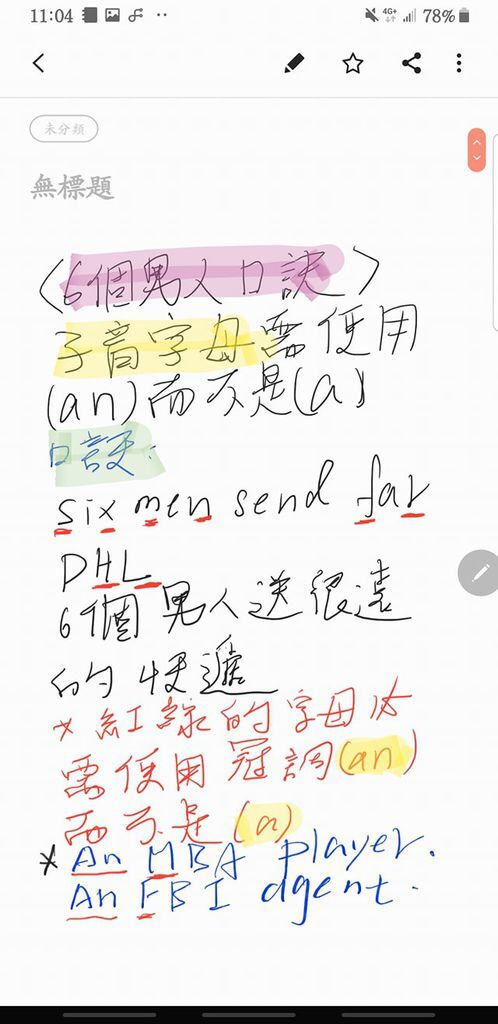 11:04 4G+ 78%
未分類
無標題
<6個男人口訣>
子音字母需使用
(an)而不是(a)
口訣:
six men send far
DHL
6個男人送很遠
的快遞
*紅線的字母必
需使用冠詞(an)
而不是(a)
*An MBA player.
An FBI agent.